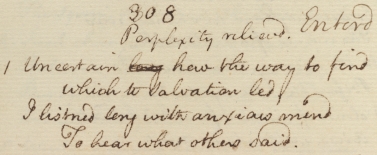 308
Perplexity relievd. Enterd
1 Uncertain how the way to find
which to salvation led,
I listned long with anxious mind
To hear what others said.